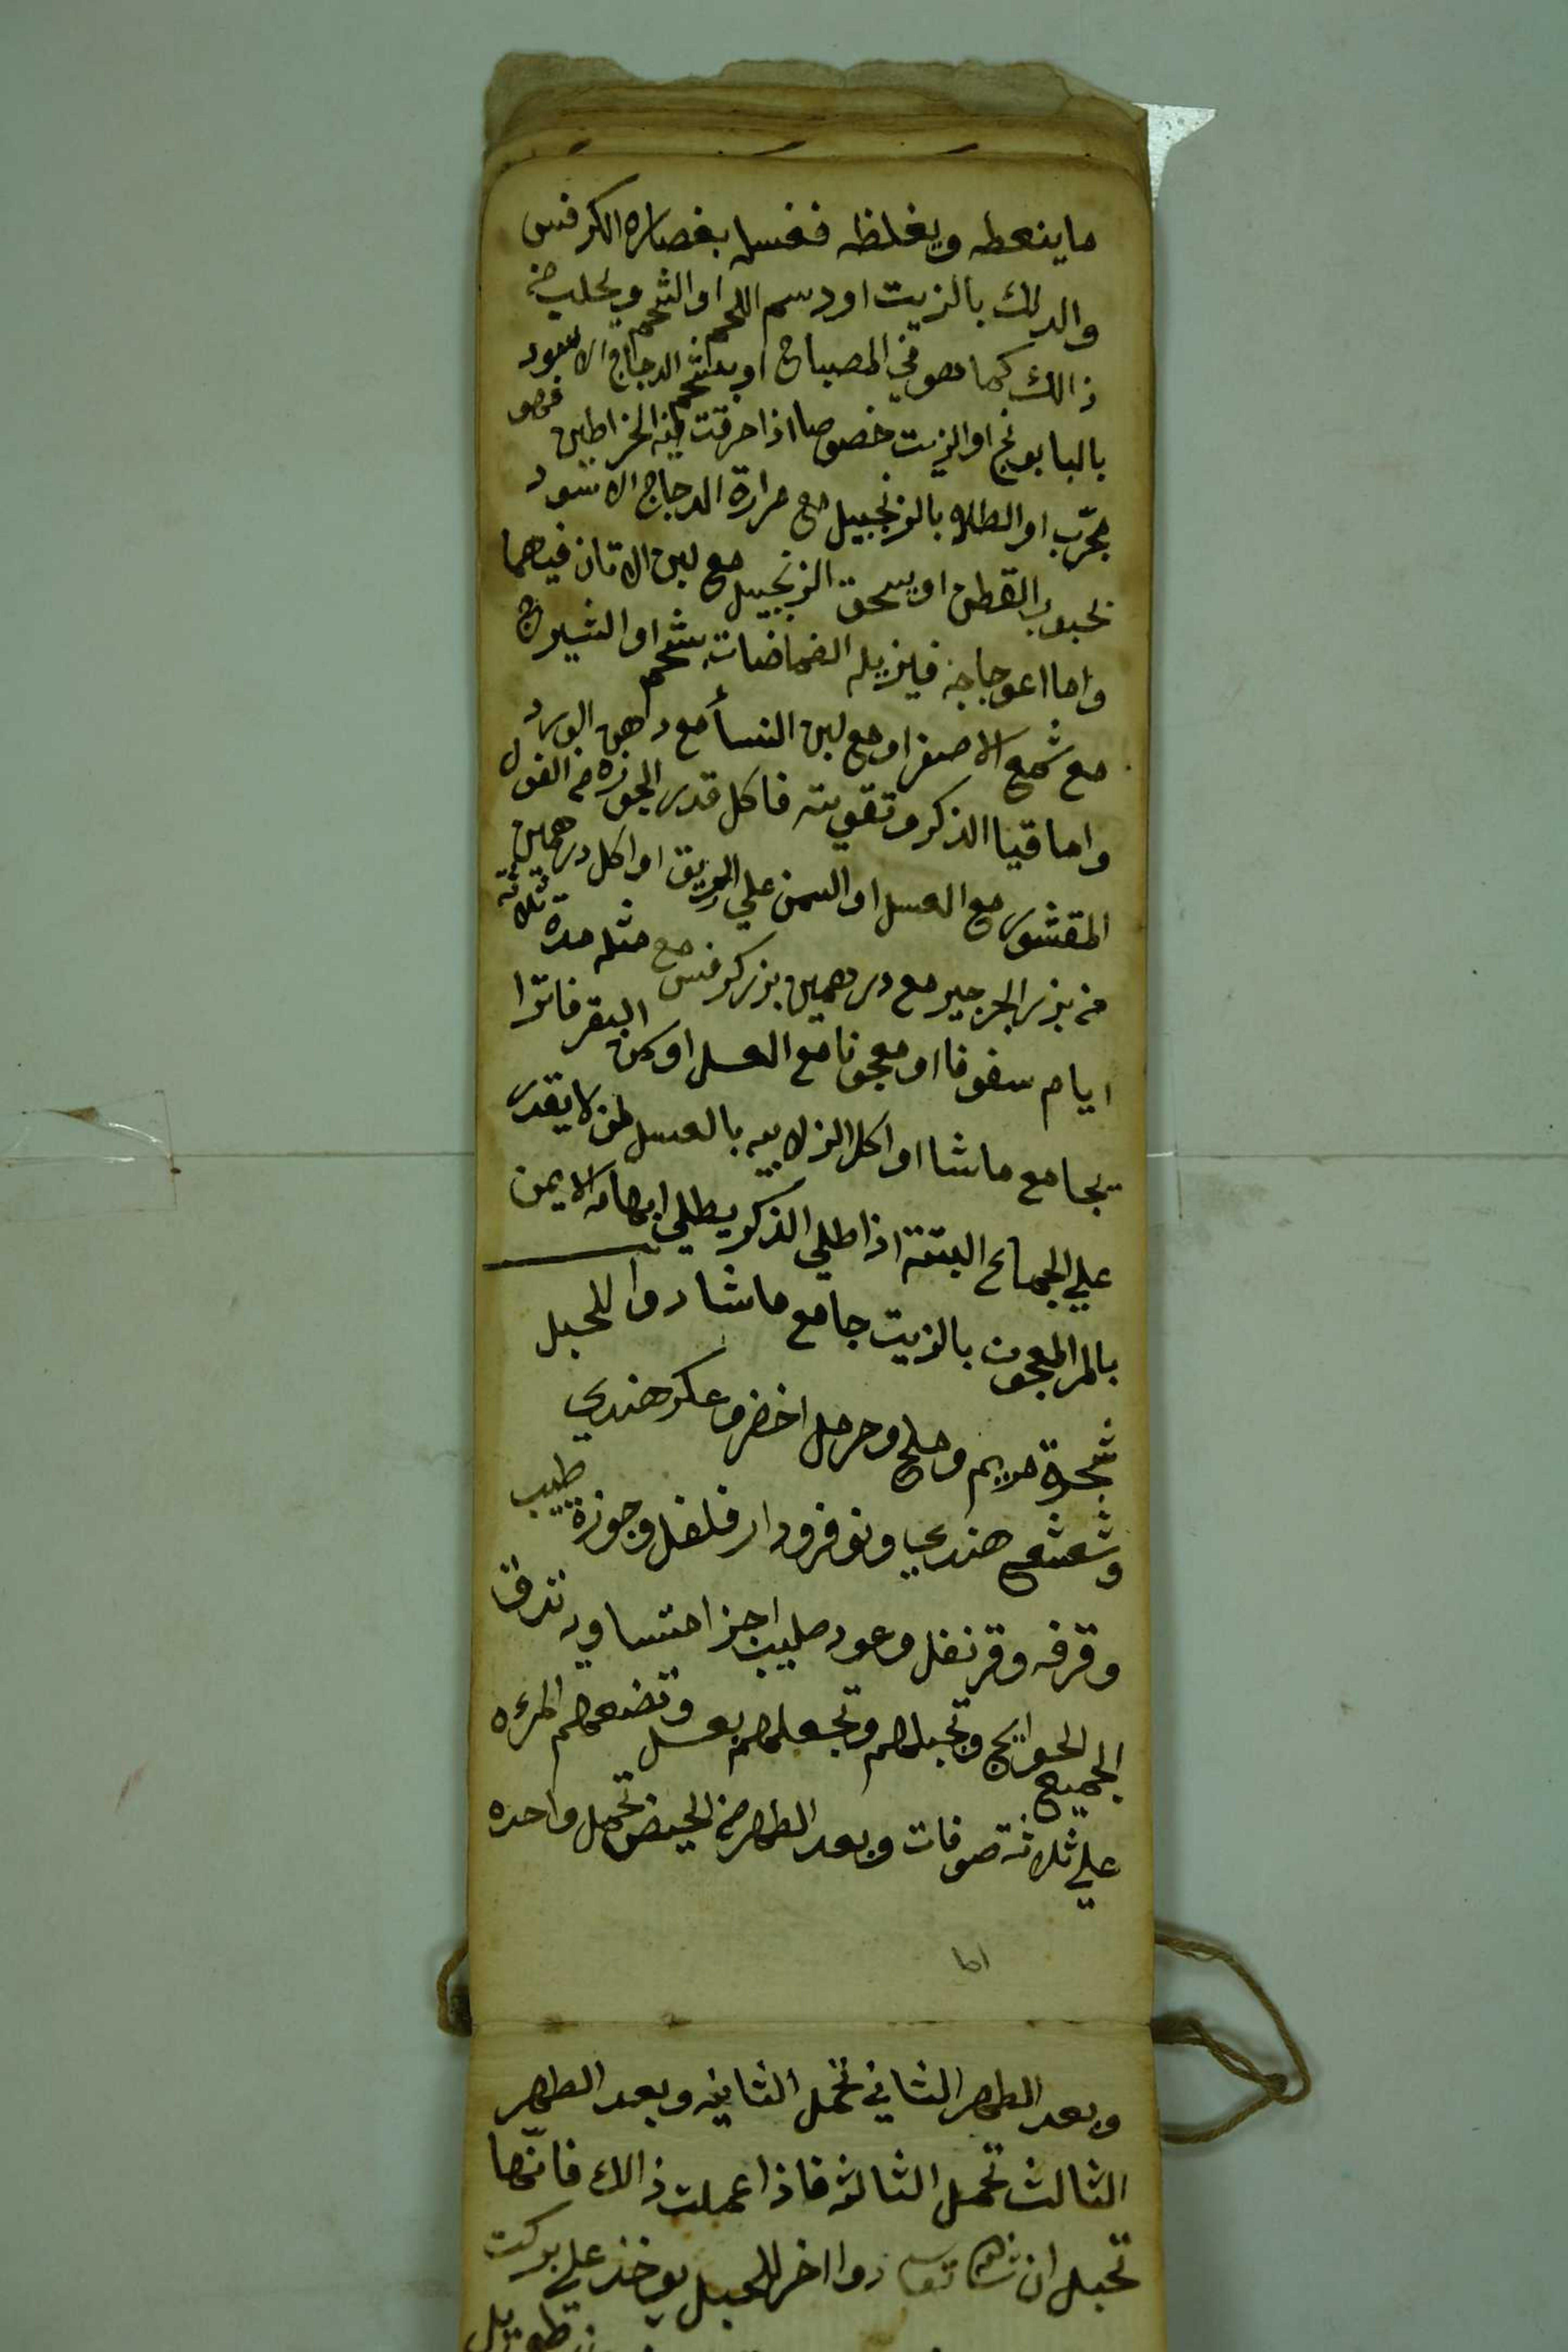 ما ينعظه ويغلظه فغسله بعصاره الكرفس
والدلك بالزيت او دسم اللحم او الشحم ويحلب من
ذالك كما هو في المصباح او بشحم الدجاج الاسود
بالبابونج او الزيت خصوصا اذا حرقت فيه الخراطين فهو
مجرّب او الطلا بالزنجبيل مع مرارة الدجاج الاسود
بحبوب القطن او يسحق الزنجبيل مع لبن الاتان فيهما
واما اعوجاجه فيزيله الضماضات بشحم او الشيرج
مع شمع الاصفر او مع لبن النسأ مع دهن الورد
واما قيا الذكر وتقويته فاكل قدر الجوزه من الفول
المقشور مع العسل او السمن علي الريق او اكل درهمين
من بزر الجرجير مع درهمين بزر كرفس مع مثله مدة ثلاثة
ايام سفوفا او معجونا مع العسل او لبن البقر فاترا
يجامع ماشا او اكل الزلابيه بالعسل لمن لا يقدر
علي الجماع البتة اذا طلي الذكر يطلي ابهامه الايمن
بالمر المعجون بالزيت جامع ماشا دوا للحبل
شجرة مريم وملح وحرمل اخضر وعكر هندي
وشعشع هندي ونوفر ودار فلفل وجوزة طيب
وقرفه وقرنفل وعود صليب اجزا متساويه تدق
الجميع الحوايج وتجبلهم وتجعلهم بعسل وتضعهم المرءه
علي ثلاثة صوفات وبعد الطهر من الحيض تحمل واحده
وبعد الطهر الثاني تحمل الثانيه وبعد الطهر
الثالث تحمل الثالثه فاذا عملت ذالك فانّها
تحبل ان شا الله تعا دوا اخر للحبل يوخذ علي بركت